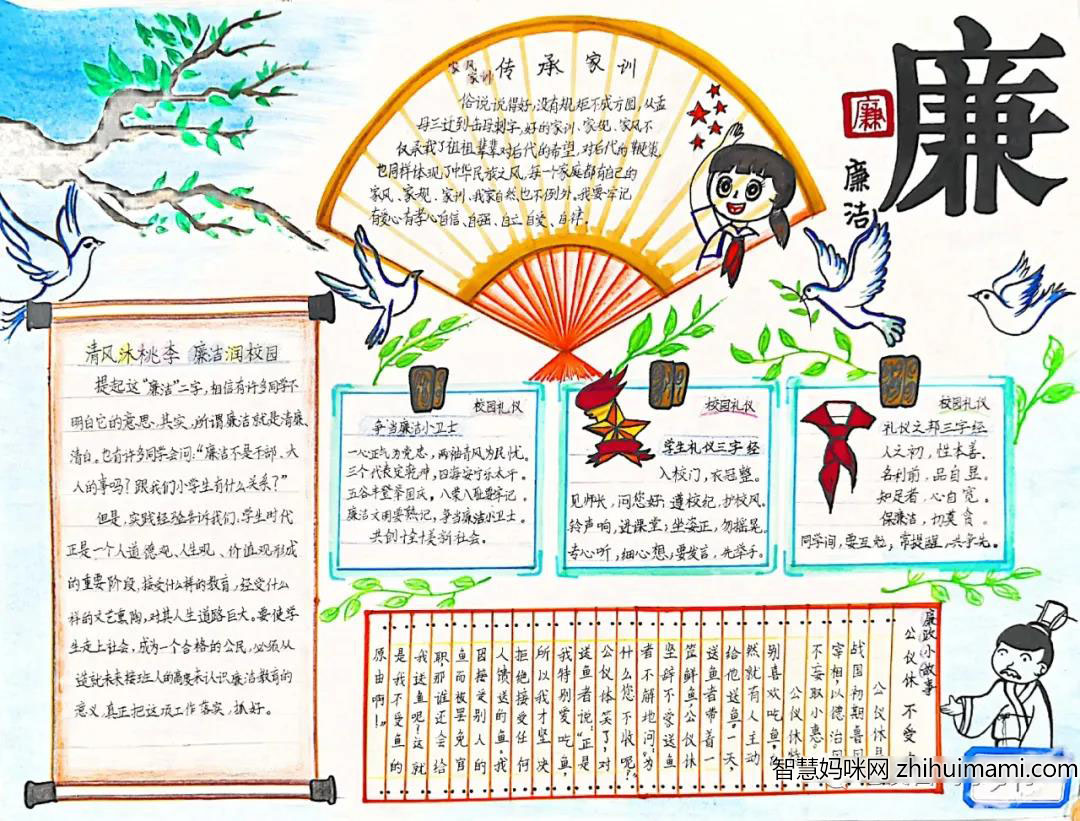 廉
廉
廉洁
家风
家训
传承家训
俗说说得好,没有规矩不成方圆,从孟
母三迁到岳母刺字,好的家训、家规、家风不
仅承载了祖祖辈辈对后代的希望,对后代的鞭策,
也同样体现了中华民族之风,每一个家庭都有自己的
家风、家规、家训,我家自然也不例外。我要牢记
有爱心有孝心自信、自强、自立、自爱、自律。
清风沐桃李 廉洁润校园
提起这“廉洁”二字,相信有许多同学不
明白它的意思,其实,所谓廉洁就是清廉、
清白。也有许多同学会问:“廉洁不是干部、大
人的事吗?跟我们小学生有什么关系?”
但是,实践经验告诉我们,学生时代
正是一个人道德观、人生观、价值观形成
的重要阶段,接受什么样的教育,经受什么
样的文艺熏陶,对其人生道路巨大。要使学
生走上社会,成为一个合格的公民,必须从
造就未来接班人的高度来认识廉洁教育的
意义,真正把这项工作落实,抓好。
校园礼仪
争当廉洁小卫士
一心正气为党忠,两袖清风为民忧。
三个代表定乾坤,四海安可乐太平。
五谷丰登举国庆,八荣八耻要牢记。
廉洁文明要熟记,争当廉洁小卫士。
共创十全十美新社会。
校园礼仪
学生礼仪三字经
入校门,衣冠整。
见师长,问您好;遵校纪,护校风。
铃声响,进课堂;坐姿正,勿摇晃。
专心听,细心想;要发言,先举手。
校园礼仪
礼仪文邦三字经
人之初,性本善。
名利前,品自显。
知足者,心自宽。
保廉洁,切莫贪。
同学间,要互勉;常提醒,共争先。
廉政小故事
公仪休不受
公仪休是
战国初期鲁国
宰相,以德治国
不妄取小惠。
公仪休特
别喜欢吃鱼,
然就有人主动
给他送鱼。一天,
送鱼者带着一
篮鲜鱼,公仪休
坚辞不受送鱼
者不解地问:“为
什么您不收呢?”
公仪休笑了,对
送鱼者说:“正是
我特别爱吃鱼,
所以我才坚决
拒绝接受任何
人馈送的鱼。我
因接受别人的
鱼而被罢免官
职那谁还会给
我送鱼呢!这就
是我不受鱼的
原由啊!”
智慧妈咪网 zhihuimami.com